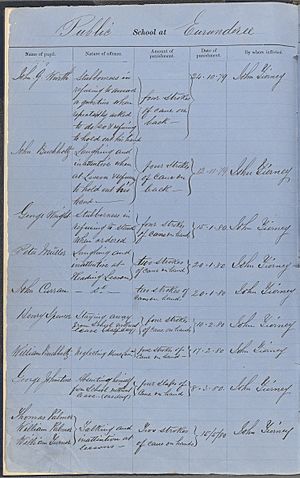 Public School at Eurunderee
Name of pupil. Nature of offence. Amount of punishment. Date of punishment. By whom inflicted.
John G. Wurth Stubborness in 24-10-79 John Tierney
refusing to answer
a question when four strokes
repeatedly asked of cane on
to do so & refusing back
to hold out his hand
John Buchholtz Laughing and
inattentive when four strokes 12-11-79 John Tierney
at Lesson & refusing of cane on
to hold out his back
hand
George Wright Stubborness in four strokes 15-1-80 John Tierney
refusing to stand of cane on hand
when ordered
Peter Müller Laughing and four strokes 20-1-80 John Tierney
inattention at of cane on hand
Reading Lesson
John Curran Do. two strokes of 20-1-80 John Tierney
cane on hand
Henry Spencer Staying away four strokes 10-2-80 John Tierney
from School without of cane on hand
cause
William Buchholtz Neglecting four strokes of 17-2-80 John Tierney
cane on hand
George Johnston Absenting himself four slaps of 8-3-80 John Tierney
from School without cane on hand
cause
Thomas Palmer
William Palmer Talking and Two strokes John Tierney
William Turner inattention at of cane on hand
lessons